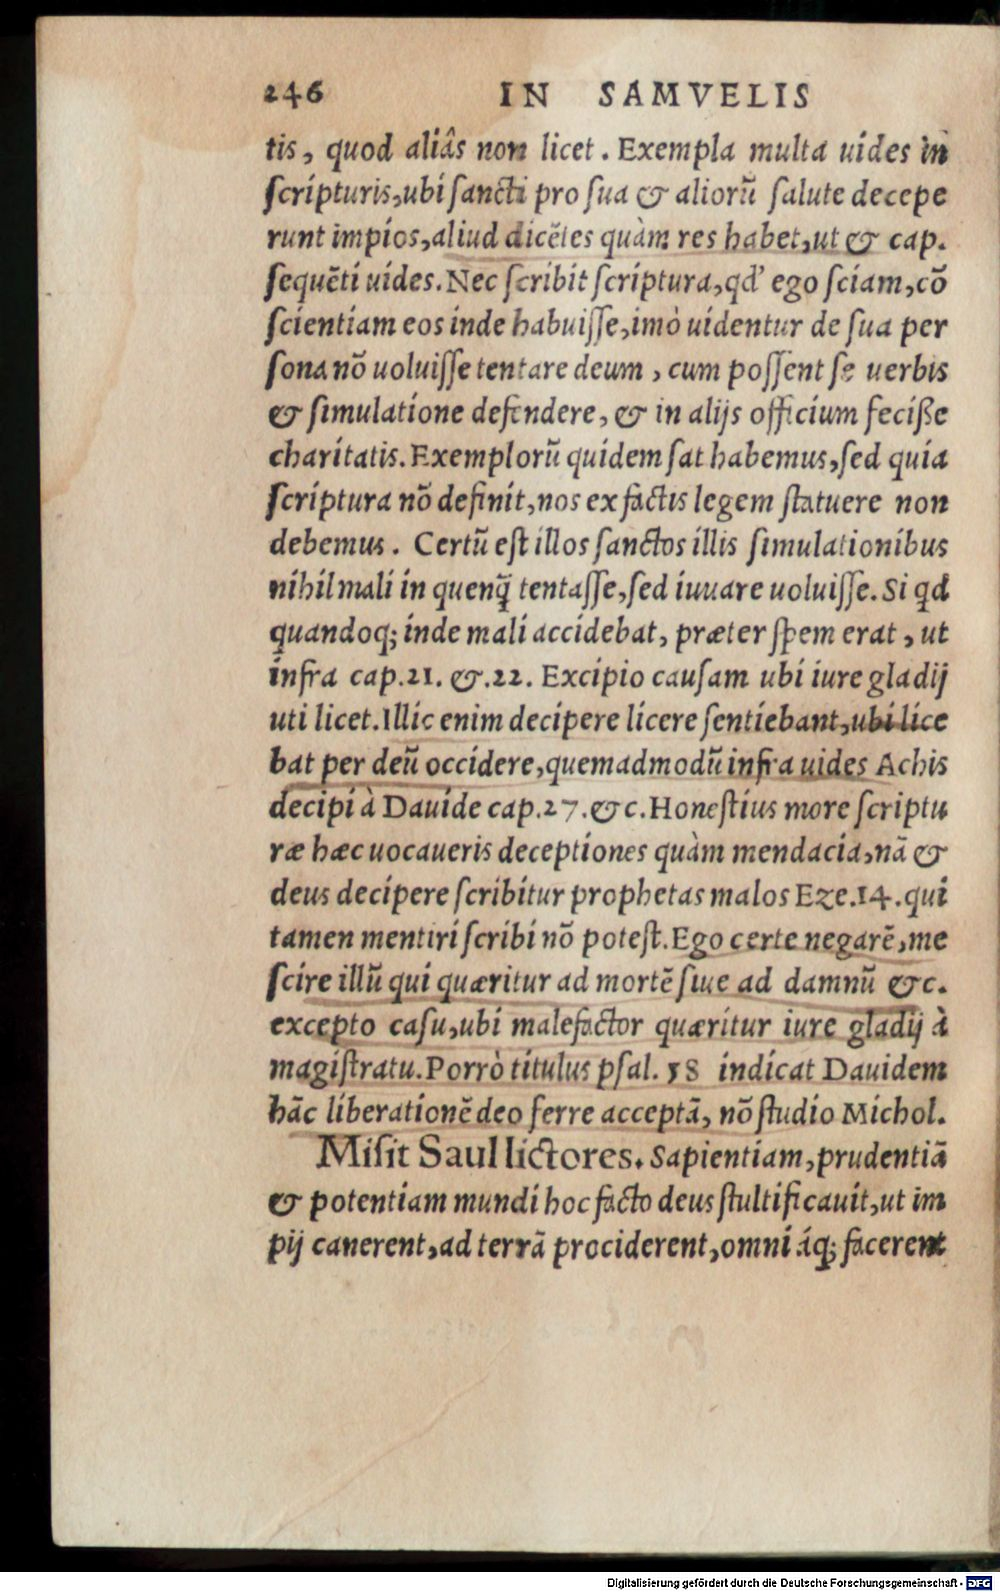 246 IN SAMVELIS
tis, quod aliâs non licet. Exempla multa uides in
scripturis, ubi sancti pro sua & aliorũ salute decepe
runt impios, aliud dicẽtes quàm res habet, ut & cap.
sequẽti uides. Nec scribit scriptura, qd' ego sciam, cõ
scientiam eos inde habuisse, imò uidentur de sua per
sona nõ uoluisse tentare deum, cum possent se uerbis
& simulatione defendere, & in alijs officium feciße
charitatis. Exemplorũ quidem sat habemus, sed quia
scriptura nõ definit, nos ex factis legem statuere non
debemus. Certũ est illos sanctos illis simulationibus
nihil mali in quenq̃ tentasse, sed iuuare uoluisse. Si qd
quandoq; inde mali accidebat, præter spem erat, ut
infra cap.21. &.22. Excipio causam ubi iure gladij
uti licet. Illic enim decipere licere sentiebant, ubi lice
bat per deũ occidere, quemadmodũ infra uides Achis
decipi à Dauide cap.27.&c. Honestius more scriptu
ræ hæc uocaueris deceptiones quàm mendacia, nã &
deus decipere scribitur prophetas malos Eze.14. qui
tamen mentiri scribi nõ potest. Ego certe negarẽ, me
scire illũ qui quæritur ad mortẽ siue ad damnũ &c.
excepto casu, ubi malefactor quæritur iure gladij à
magistratu. Porrò titulus psal. 58 indicat Dauidem
hãc liberationẽ deo ferre acceptã, nõ studio Michol.
Misit Saul lictores. Sapientiam, prudentiã
& potentiam mundi hoc facto deus stultificauit, ut im
pij canerent, ad terrã prociderent, omniáq; facerent
Digitalisierung gefördert durch die Deutsche Forschungsgemeinschaft - DFG